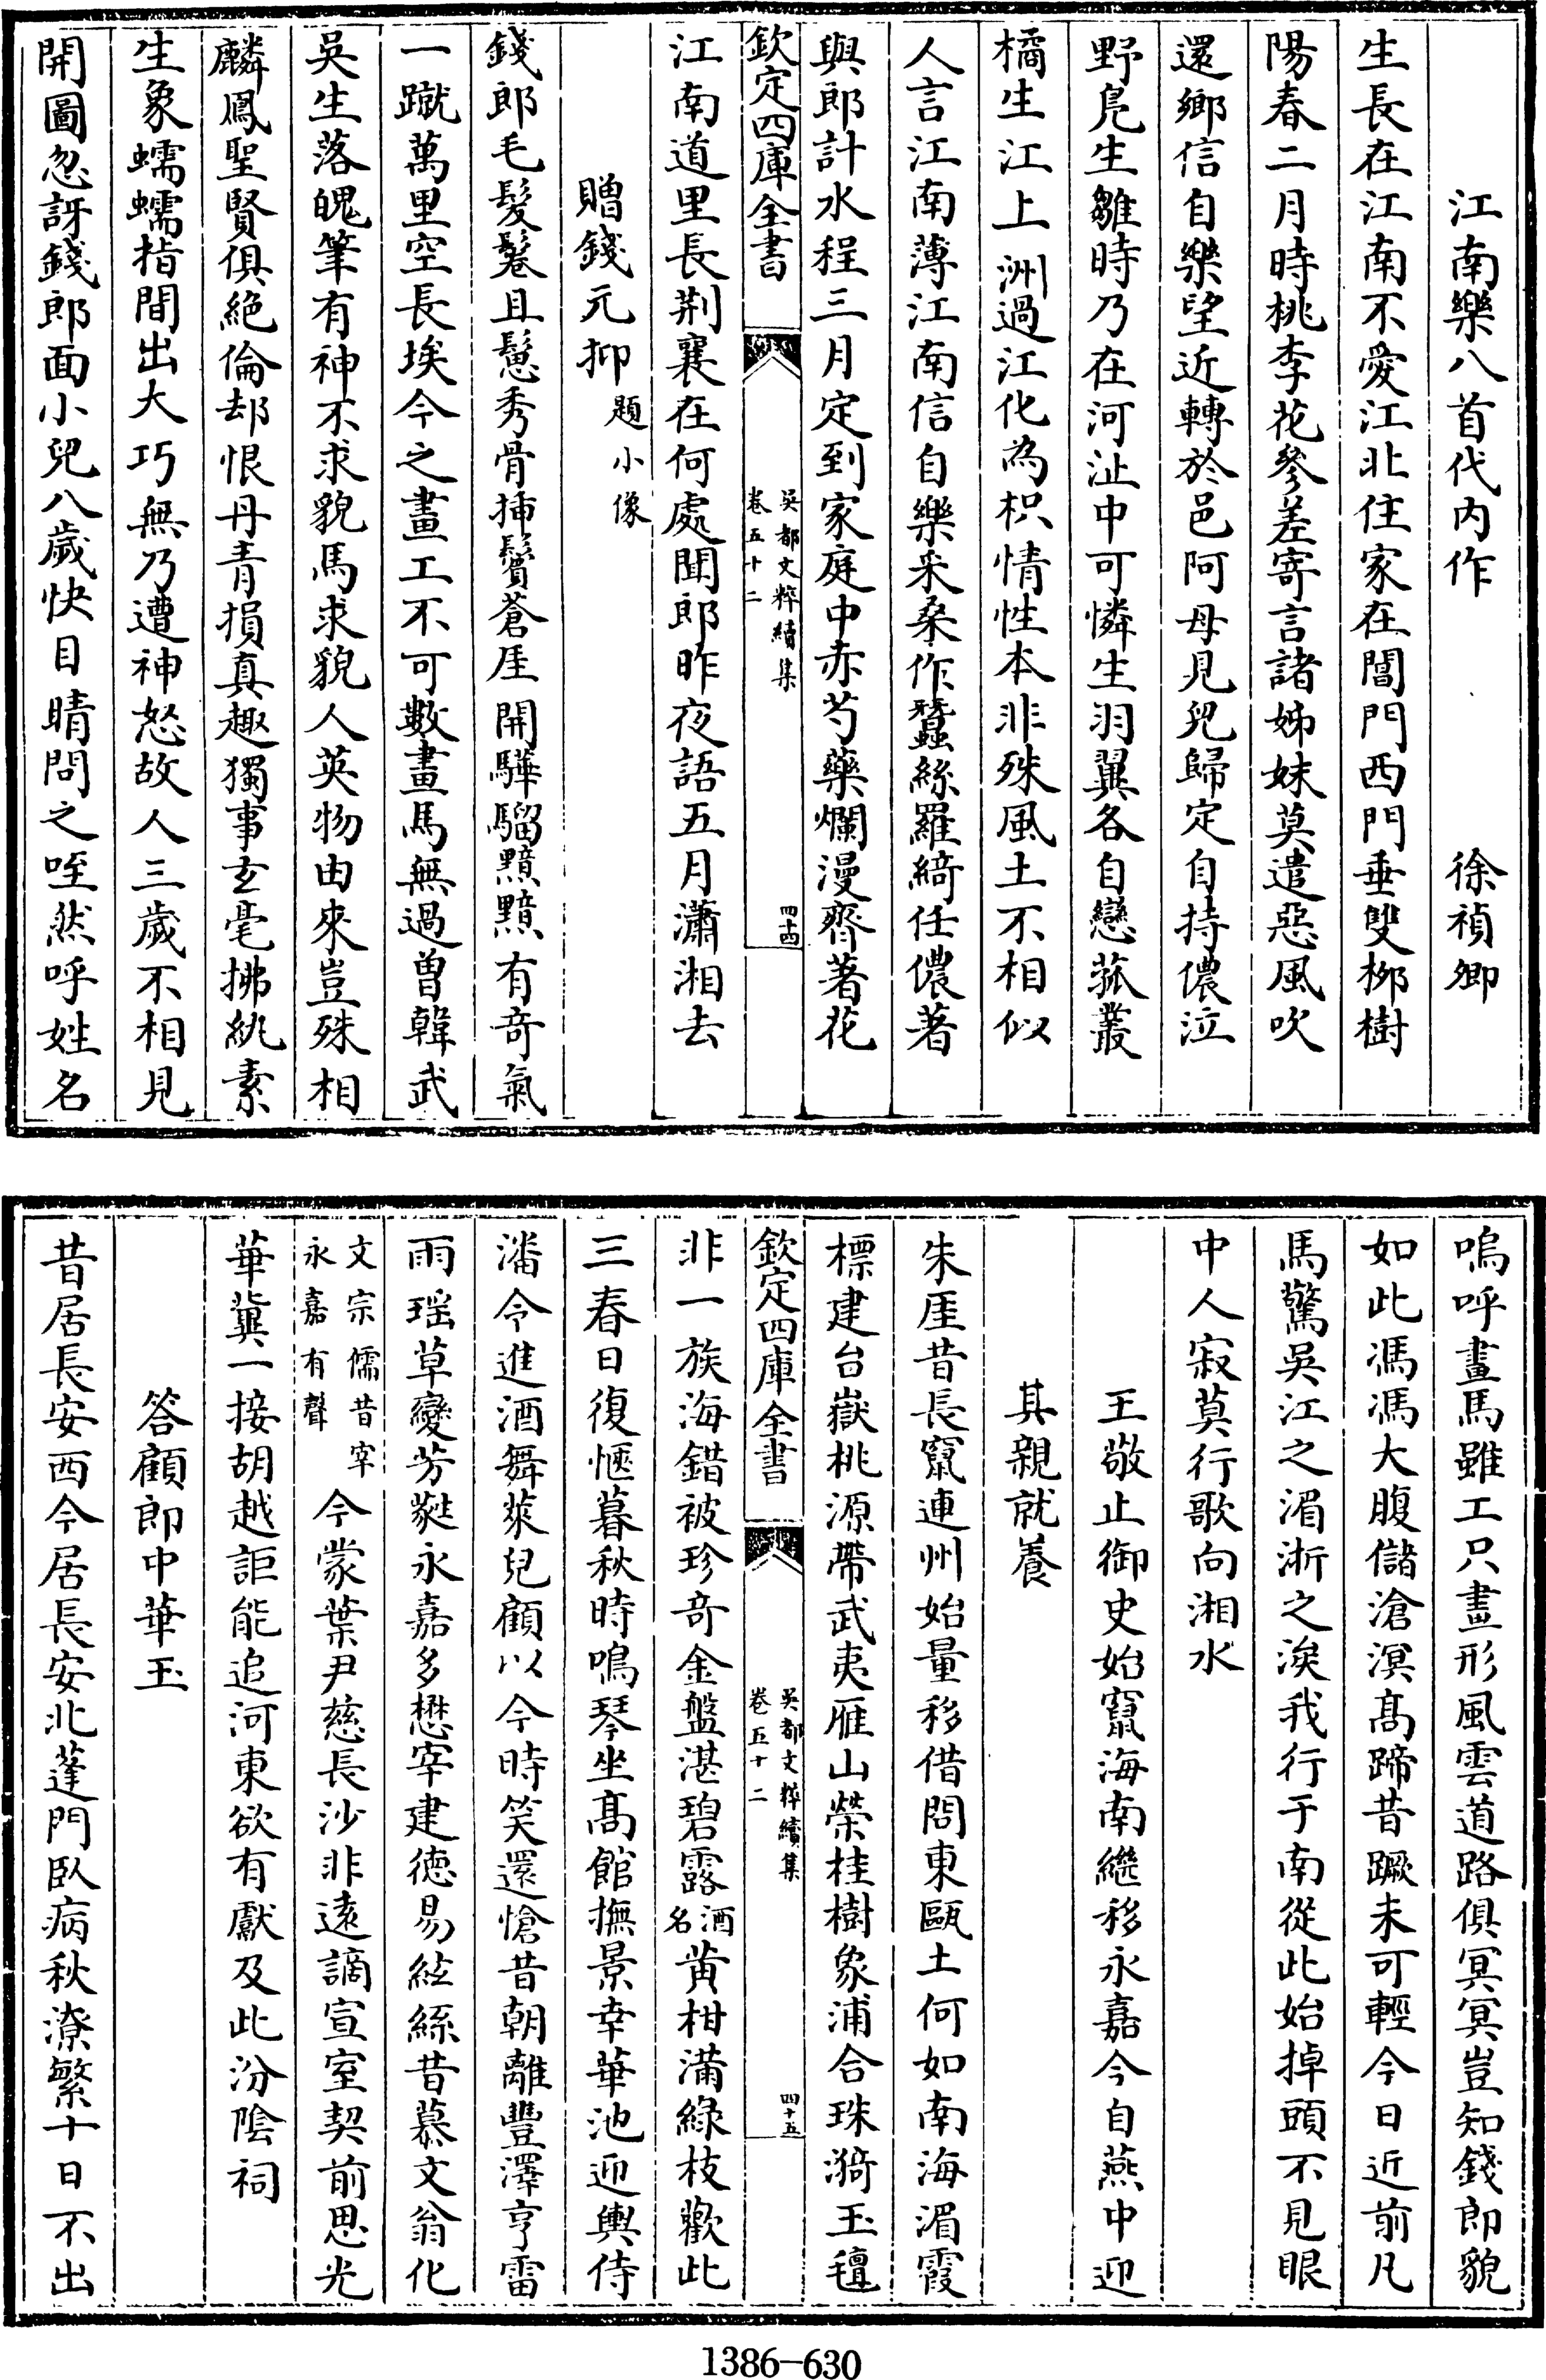 江南樂八首代內作　徐禎卿
生長在江南不愛江北住家在閶門西門垂雙栁樹
陽春二月時桃李花參差寄言諸姊妹莫遣惡風吹
還鄉信自樂望近轉於邑阿母見兒歸定自持儂泣
野鳧生雛時乃在河沚中可憐生羽翼各自戀菰叢
橘生江上洲過江化為枳情性本非殊風土不相似
人言江南薄江南信自樂采桑作蠶絲羅綺任儂著
與郎計水程三月定到家庭中赤芍藥爛漫齊著花
欽定四庫全書
吳都文粹續集
卷五十二
四十四
江南道里長荆襄在何處聞郎昨夜語五月瀟湘去
贈錢元抑題小像
錢郎毛髮鬈且鬆秀骨揷鬢蒼厓開驊騮黯黯有奇氣
一蹴萬里空長埃今之畫工不可數畫馬無過曽韓武
吳生落魄筆有神不求貌馬求貌人英物由來豈殊相
麟鳳聖賢俱絶倫却恨丹青損真趣獨事玄毫拂紈素
生象蠕蠕指間出大巧無乃遭神怒故人三歲不相見
開圖忽訝錢郎面小兒八歲快目睛問之咥然呼姓名
嗚呼畫馬雖工只畫形風雲道路俱冥冥豈知錢郎貌
如此馮馮大腹儲滄溟髙蹄昔蹶未可輕今日近前凡
馬驚吳江之湄浙之涘我行于南從此始掉頭不見眼
中人寂莫行歌向湘水
王敬止御史始竄海南繼移永嘉今自燕中迎
其親就養
朱厓昔長竄連州始量移借問東甌土何如南海湄霞
標建台嶽桃源帶武夷雁山榮桂樹象浦合珠漪玉䕊
欽定四庫全書
吳都文粹續集
卷五十二
四十五
非一族海錯被珍奇金盤湛碧露酒名黄柑滿綠枝歡此
三春日復愜暮秋時鳴琴坐髙館撫景幸華池迎輿侍
潘令進酒舞萊兒顧以今時笑還愴昔朝離豐澤亨雷
雨瑶草變芳蕤永嘉多懋宰建德易絃絲昔慕文翁化
文宗儒昔宰永嘉有聲今蒙葉尹慈長沙非遠謫宣室契前思光
華冀一接胡越詎能追河東欲有獻及此汾陰祠
答顧郎中華玉
昔居長安西今居長安北蓬門臥病秋潦繁十日不出
1386-630